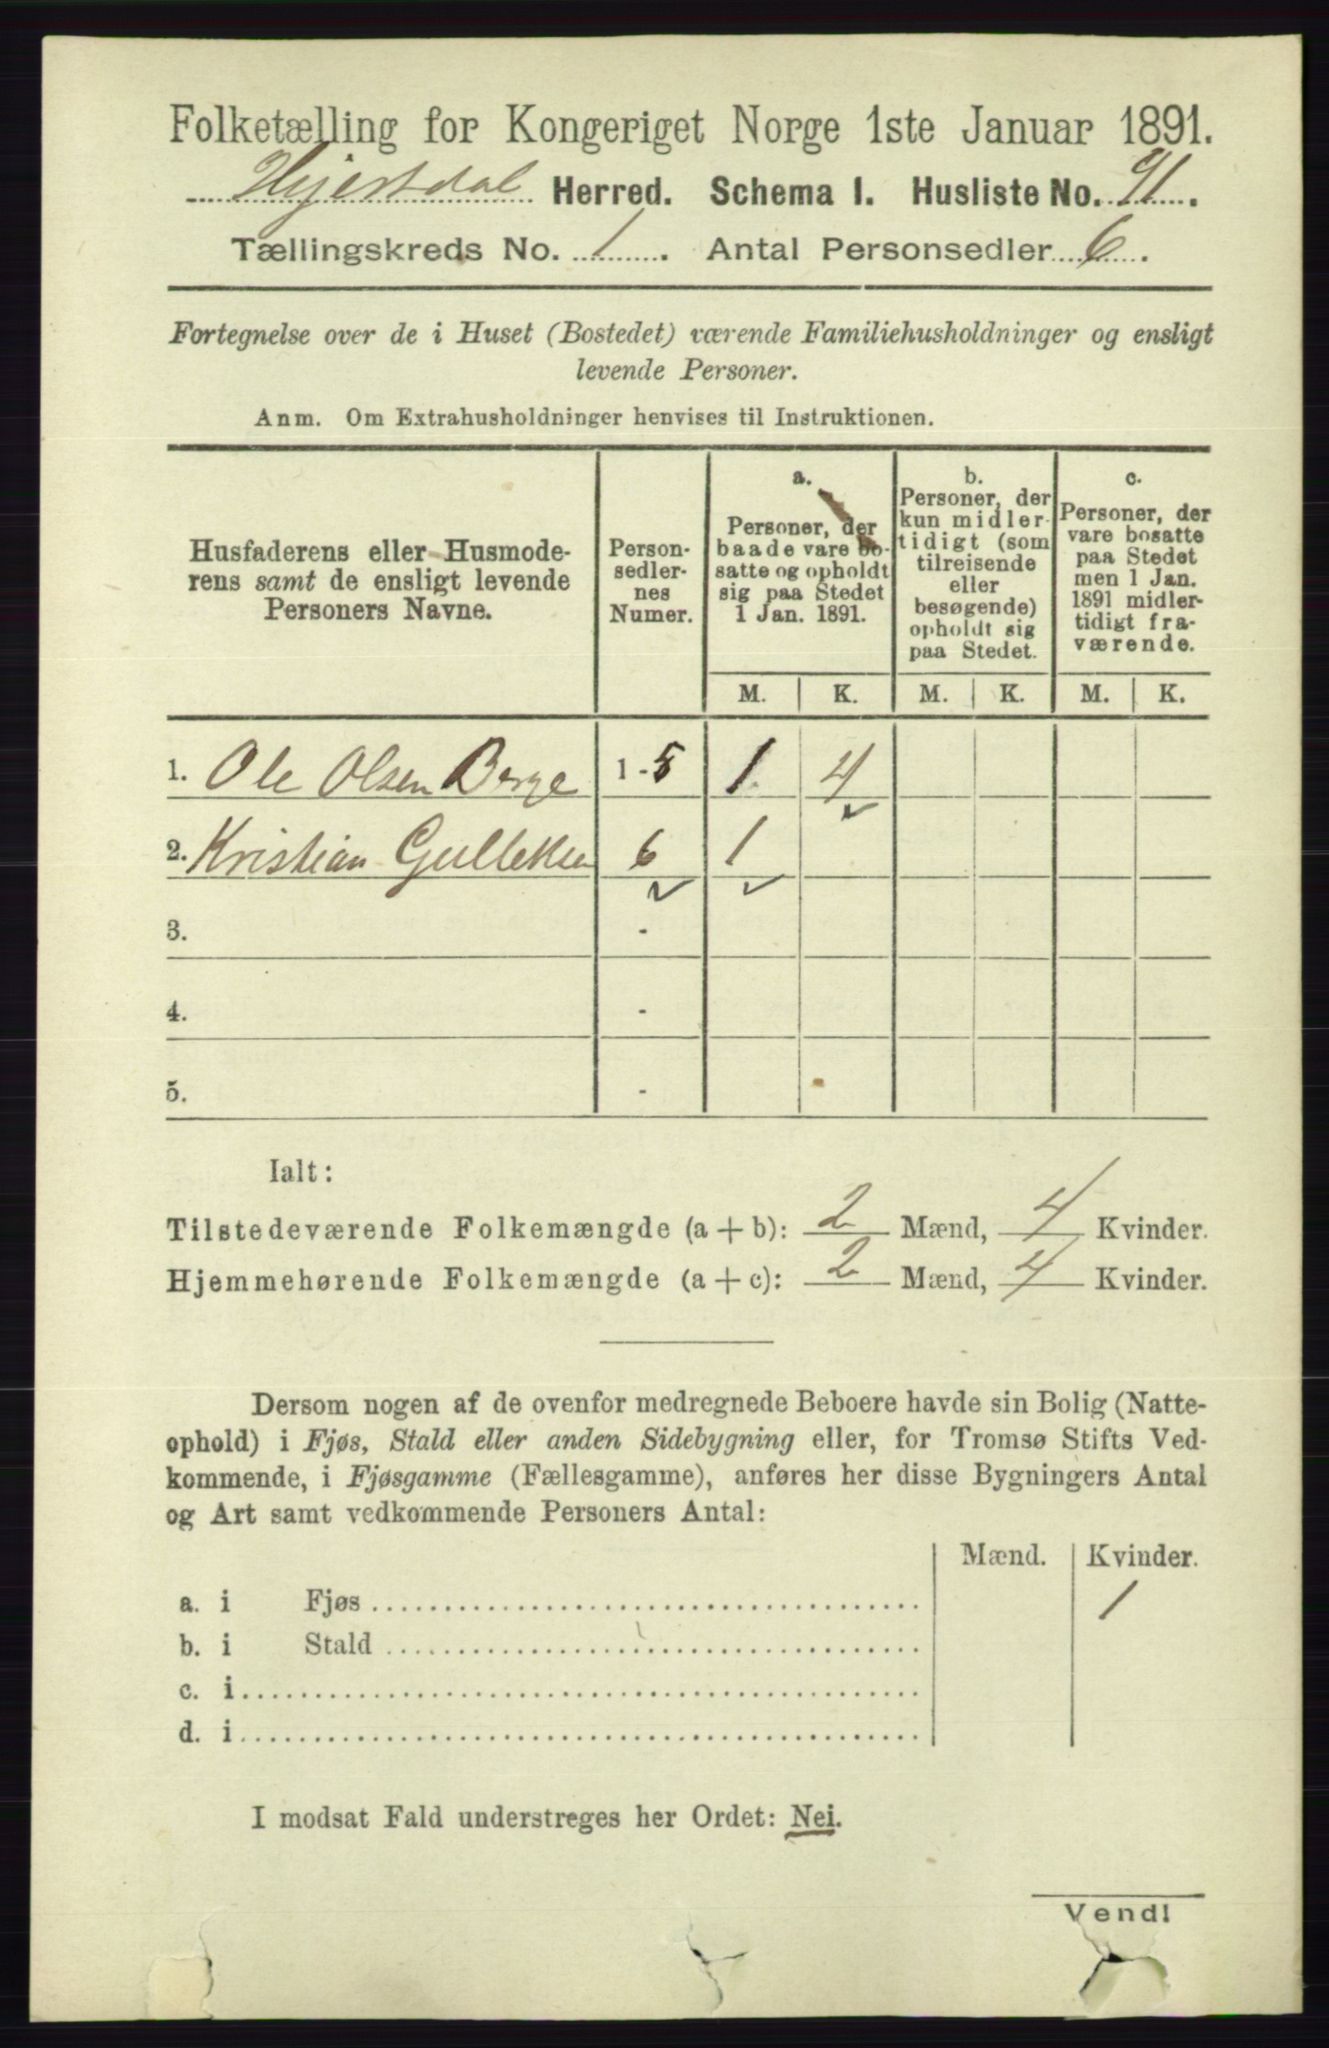 Folketælling for Kongeriget Norge 1ste Januar 1891.
Hjertdal Herred. Schema I. Husliste No. 91.
Tællingskreds No. 1. Antal Personsedler 6.
Fortegnelse over de i Huset (Bostedet) værende Familiehusholdninger og ensligt
levende Personer.
Anm. Om Extrahusholdninger henvises til Instruktionen.
Husfaderens eller Husmode-
rens samt de ensligt levende
Personers Navne.
Person-
sedler-
nes
Numer.
a.
Personer, der
baade vare bo-
satte og opholdt
sig paa Stedet
1 Jan. 1891.
b.
Personer, der
kun midler-
tidigt (som
tilreisende
eller
besøgende)
opholdt sig
paa Stedet.
c.
Personer, der
vare bosatte
paa Stedet
men 1 Jan.
1891 midler-
tidigt fra-
værende.
M. K. M. K. M. K.
1. Ole Olsen Berge 1-5 1 4
2. Kristian Gulleksen 6 1
3. -
4. -
5. -
Ialt:
Tilstedeværende Folkemængde (a + b): 2 Mænd, 4 Kvinder.
Hjemmehørende Folkemængde (a + c): 2 Mænd, 4 Kvinder.
Dersom nogen af de ovenfor medregnede Beboere havde sin Bolig (Natte-
ophold) i Fjøs, Stald eller anden Sidebygning eller, for Tromsø Stifts Ved-
kommende, i Fjøsgamme (Fællesgamme), anføres her disse Bygningers Antal
og Art samt vedkommende Personers Antal:
Mænd. Kvinder.
a. i Fjøs 1
b. i Stald
c. i
d. i
I modsat Fald understreges her Ordet: Nei.
Vend!